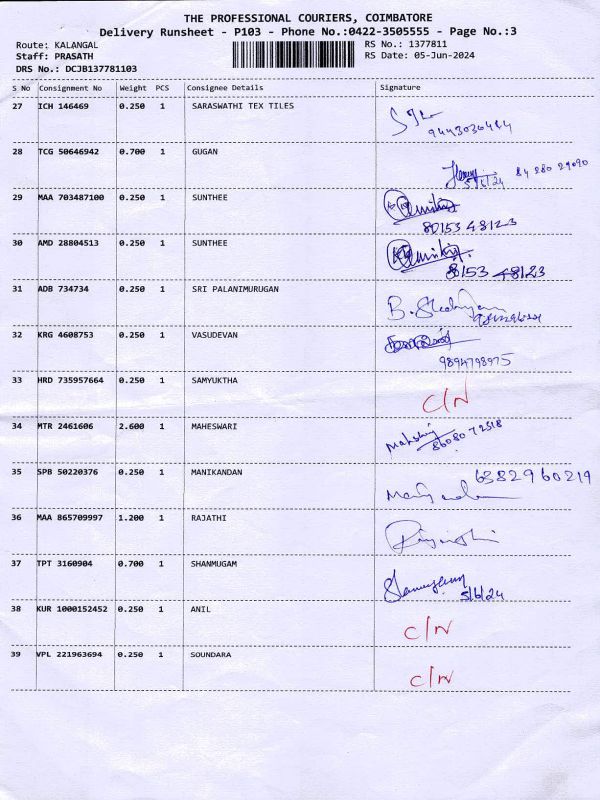 THE PROFESSIONAL COURIERS, COIMBATORE
Delivery Runsheet - P103 - Phone No.:0422-3505555 - Page No.:3
Route: KALANGAL
RS No.: 1377811
Staff: PRASATH
RS Date: 05-Jun-2024
DRS No.: DCJB137781103
S No Consignment No Weight PCS Consignee Details Signature
27 ICH 146469 0.250 1 SARASWATHI TEX TILES
28 TCG 50646942 0.700 1 GUGAN
5/6/24
29 MAA 703487100 0.250 1 SUNTHEE
80153 48123
30 AMD 28804513 0.250 1 SUNTHEE
8153 48123
31 ADB 734734 0.250 1 SRI PALANIMURUGAN
32 KRG 4608753 0.250 1 VASUDEVAN
9894798975
33 HRD 735957664 0.250 1 SAMYUKTHA
C/N
34 MTR 2461606 2.600 1 MAHESWARI
8608072518
35 SPB 50220376 0.250 1 MANIKANDAN
6382960219
36 MAA 865709997 1.200 1 RAJATHI
37 TPT 3160904 0.700 1 SHANMUGAM
5/6/24
38 KUR 1000152452 0.250 1 ANIL
C/N
39 VPL 221963694 0.250 1 SOUNDARA
C/N